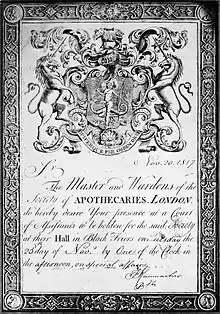 Nov. 20. 1817
Sir
The Master and Wardens of the
Society of APOTHECARIES, LONDON,
do hereby desire Your presence at a Court
of Assistants to be holden for the said Society
at their Hall in Black Friers on Tuesday the
25 day of Nov. by One of the Clock in
the afternoon, on special affairs